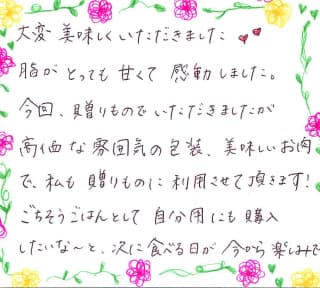 大変美味しくいただきました
脂がとっても甘くて感動しました。
今回、贈りものでいただきましたが
高価な雰囲気の包装、美味しいお肉
で、私も贈りものに利用させて頂きます!
ごちそうごはんとして自分用にも購入
したいな〜と、次に食べる日が今から楽しみで